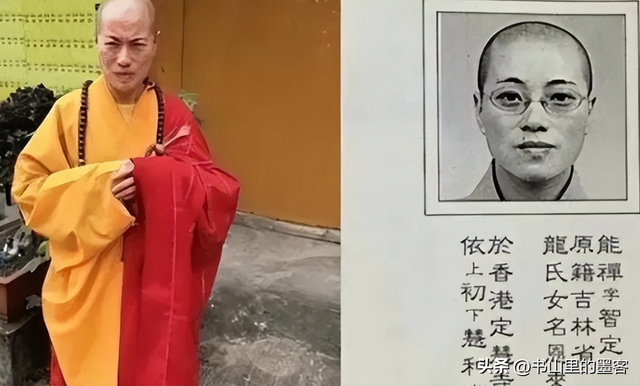 能禪字智定
原籍吉林省
龍氏女名
於香港定慧
依上初下慧和
头条 @书山里的墨客